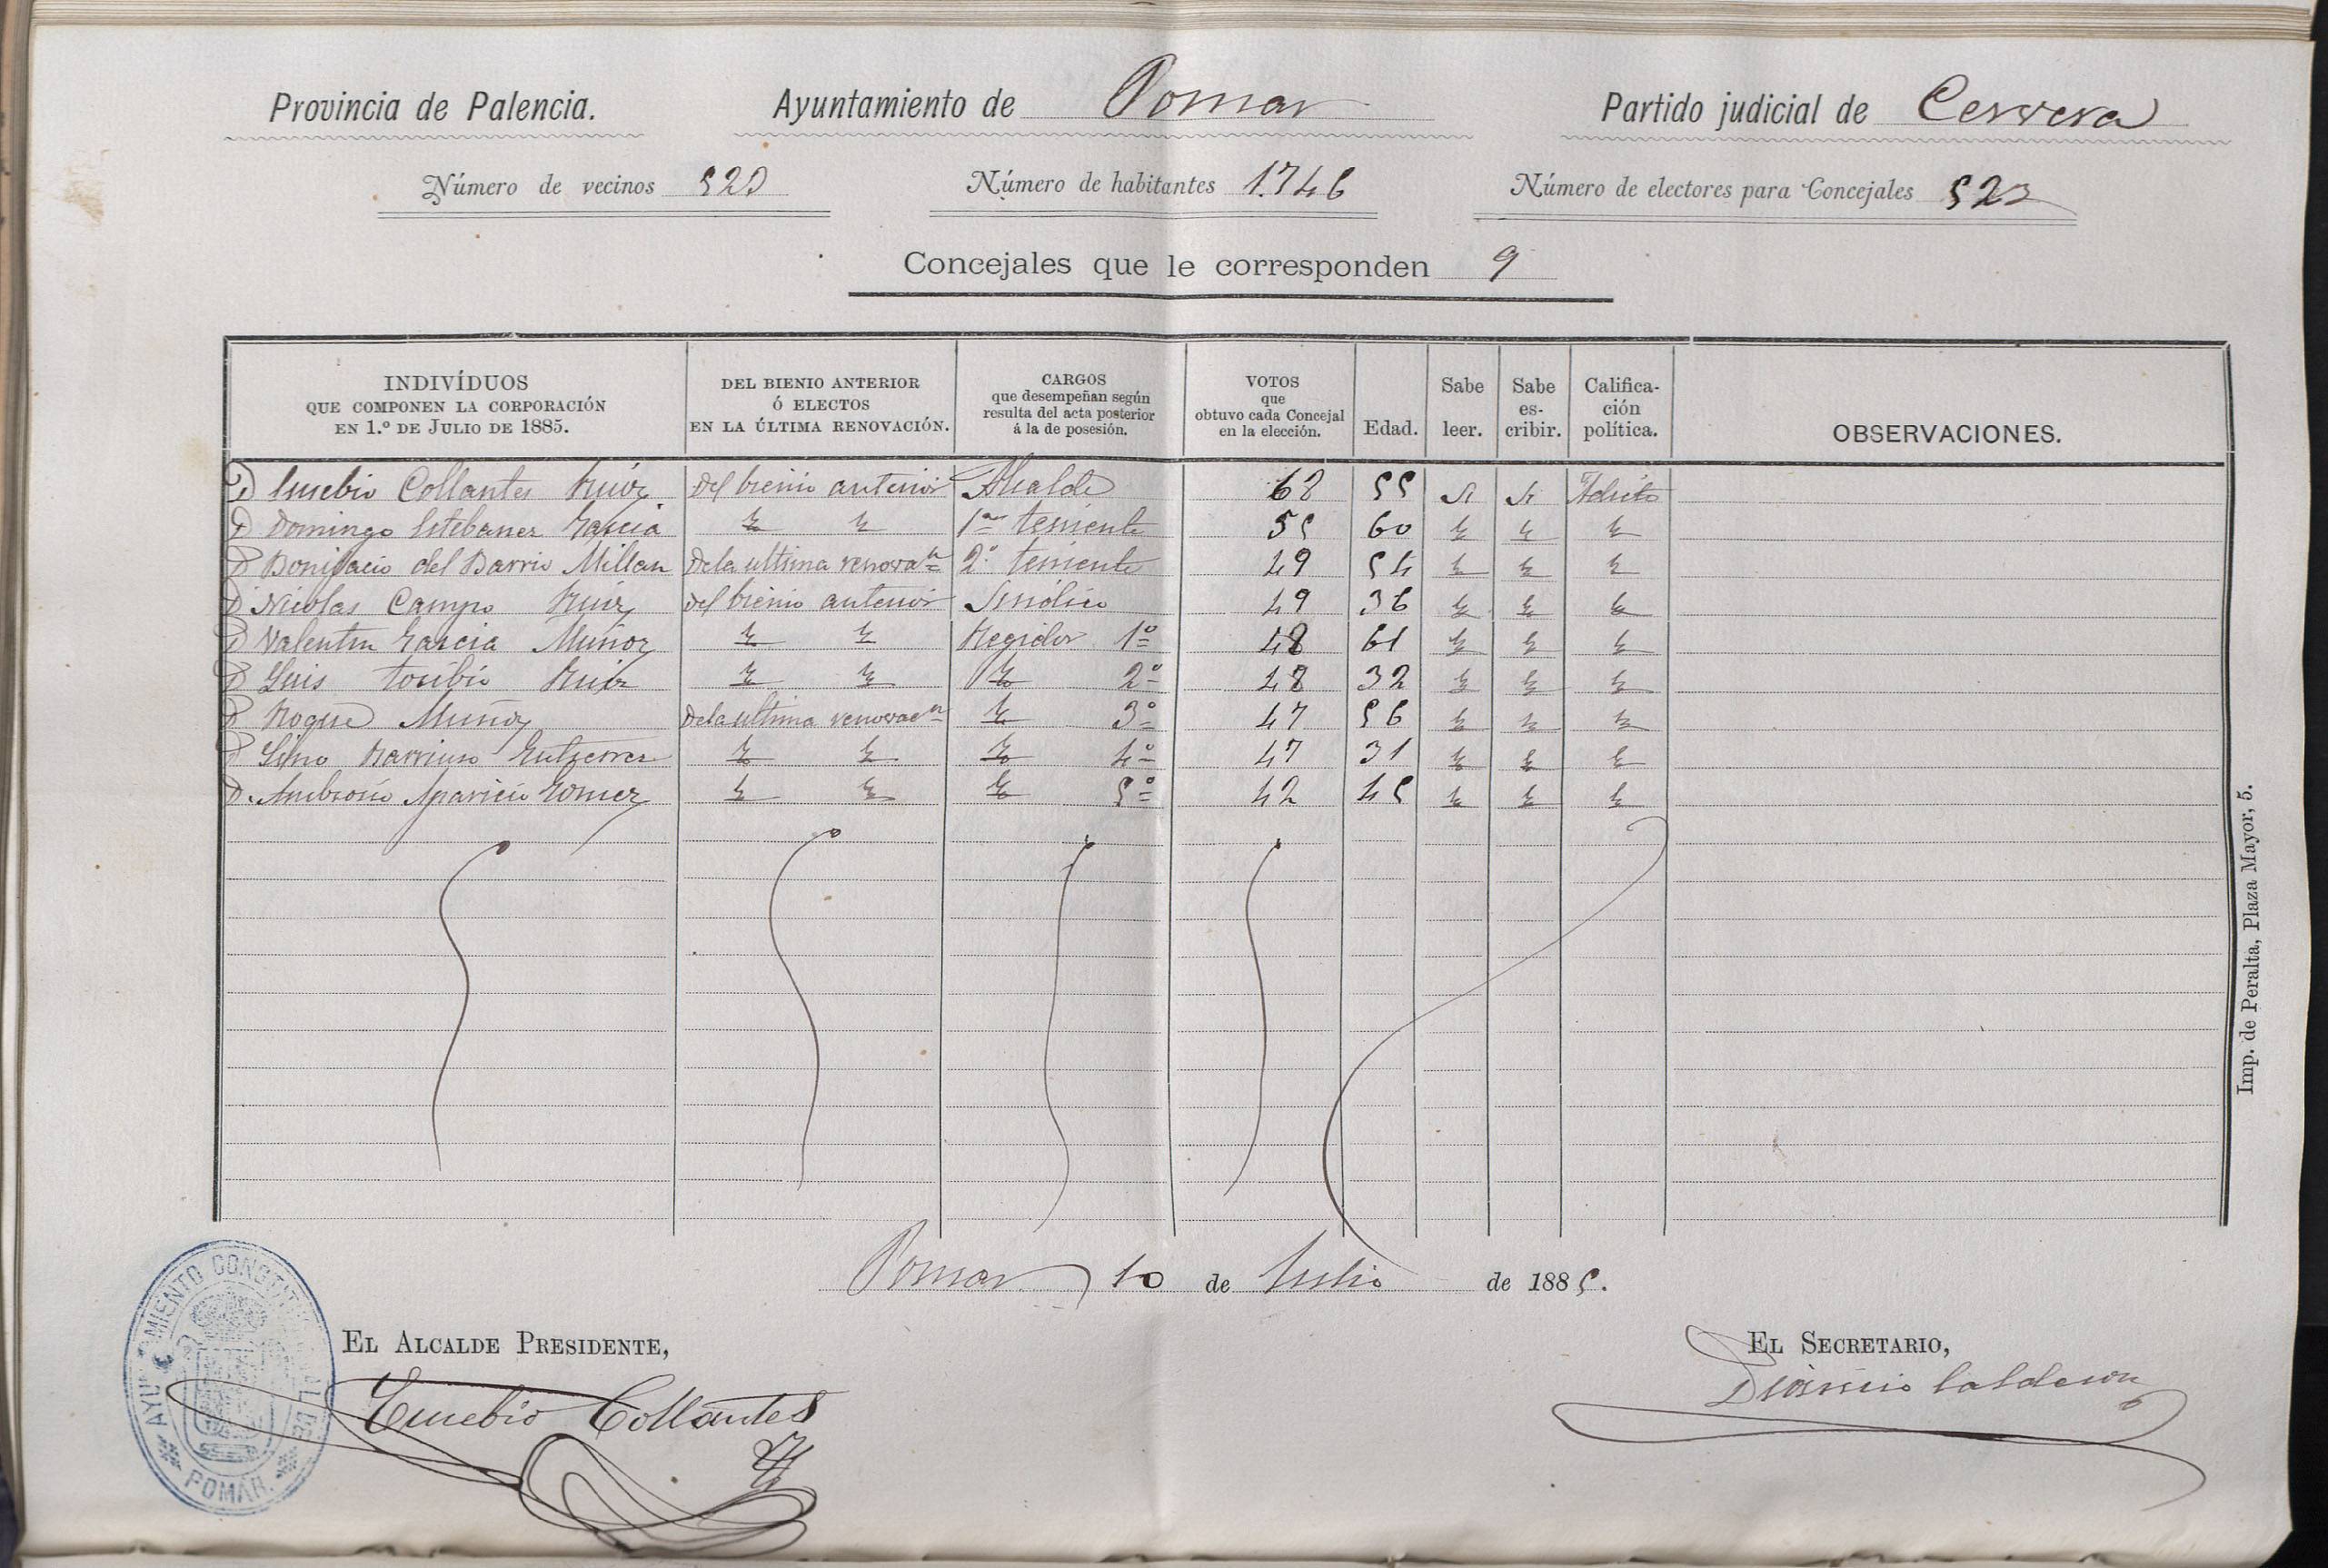 Provincia de Palencia. Ayuntamiento de Pomar Partido judicial de Cervera
Número de vecinos 520 Número de habitantes 1.746 Número de electores para Concejales 523
Concejales que le corresponden 9
INDIVÍDUOS QUE COMPONEN LA CORPORACIÓN EN 1.º DE JULIO DE 1885. DEL BIENIO ANTERIOR Ó ELECTOS EN LA ÚLTIMA RENOVACIÓN. CARGOS que desempeñan según resulta del acta posterior á la de posesión. VOTOS que obtuvo cada Concejal en la elección. Edad. Sabe leer. Sabe es-cribir. Califica-ción política. OBSERVACIONES.
D Eusebio Collantes Ruiz Del bienio anterior Alcalde 68 55 Si Si Adicto
D Domingo Estebanez Garcia 1er teniente 55 60
D Bonifacio del Barrio Millan De la ultima renovan 2º teniente 49 54
D Nicolas Campo Ruiz del bienio anterior Sindico 49 36
D Valentin Garcia Muñoz Regidor 1º 48 61
D Luis Toribio Ruiz 2º 48 32
D Roque Muñoz De la ultima renovacn 3º 47 56
D Barriuso Gutierrez 4º 47 31
D. Ambrosio Aparicio Gomez 5º 42 45
Pomar 10 de Julio de 1885.
EL ALCALDE PRESIDENTE, EL SECRETARIO,
Eusebio Collantes Dionisio Calderon
AYUNTAMIENTO CONSTITUCIONAL DE POMAR.
Imp. de Peralta, Plaza Mayor, 5.